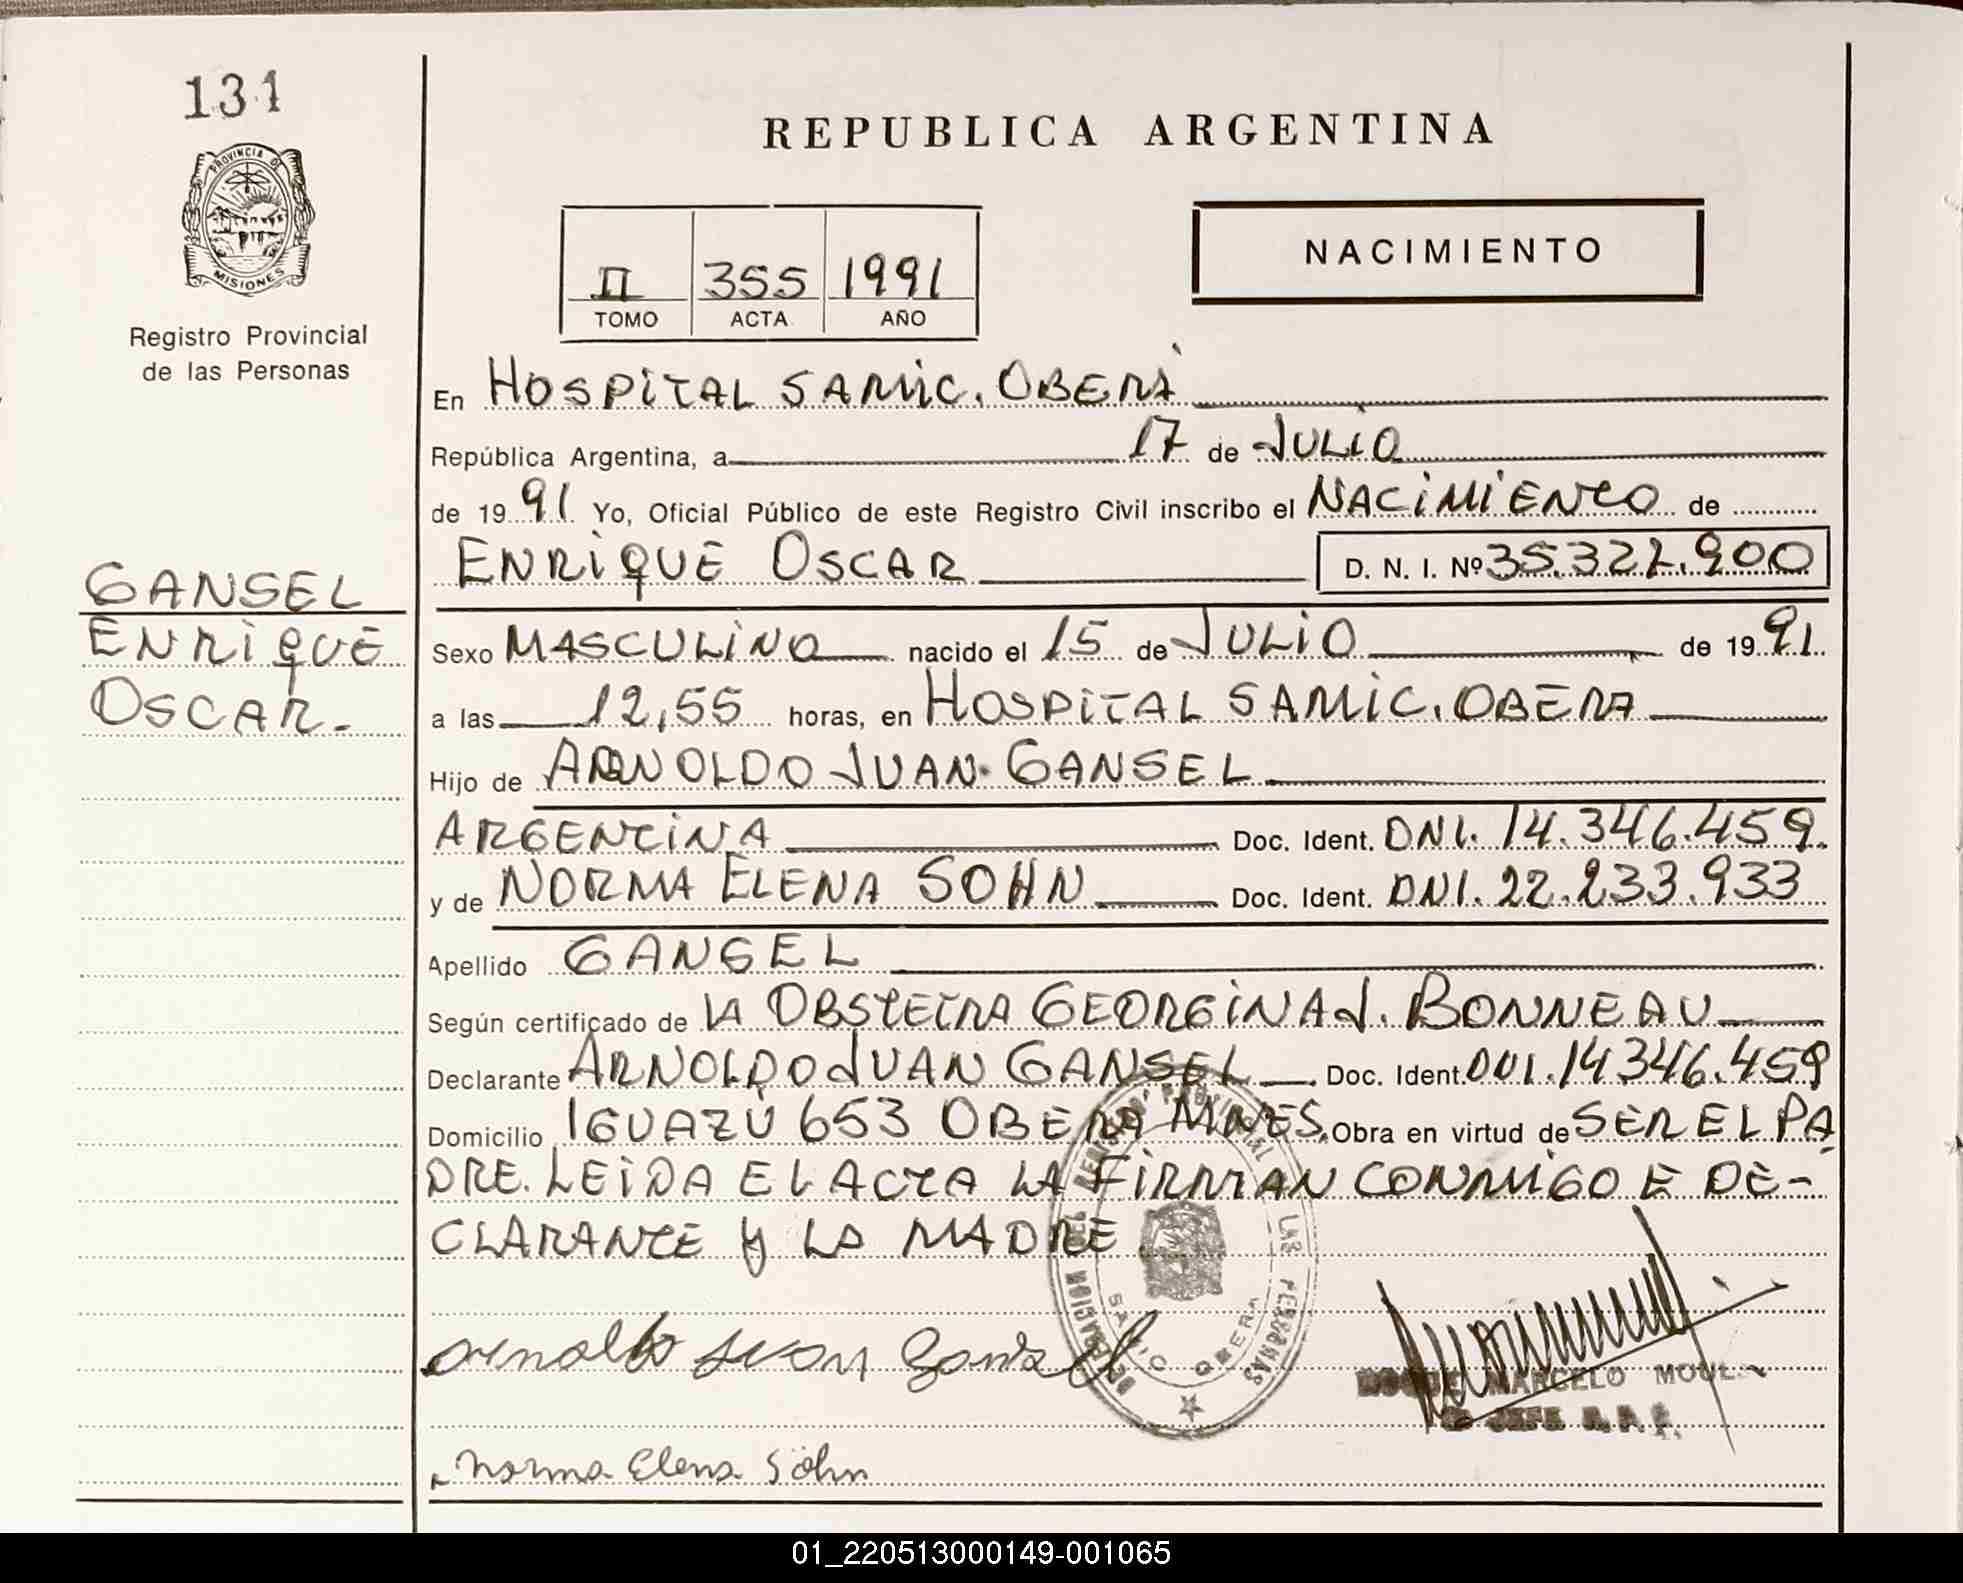 131
PROVINCIA DE
MISIONES
Registro Provincial
de las Personas
GANSEL
ENRIQUE
OSCAR.-
REPUBLICA ARGENTINA
II 355 1991
TOMO ACTA AÑO
NACIMIENTO
En HOSPITAL SAMIC. OBERÁ
República Argentina, a 17 de JULIO
de 1991 Yo, Oficial Público de este Registro Civil inscribo el NACIMIENTO de
ENRIQUE OSCAR D. N. I. Nº 35.322.900
Sexo MASCULINO nacido el 15 de JULIO de 1991.
a las 12,55 horas, en HOSPITAL SAMIC. OBERA
Hijo de ARNOLDO JUAN GANSEL
ARGENTINA Doc. Ident. DNI. 14.346.459.
y de NORMA ELENA SOHN Doc. Ident. DNI. 22.233.933
Apellido GANSEL
Según certificado de LA OBSTETRA GEORGINA J. BONNEAU
Declarante ARNOLDO JUAN GANSEL Doc. Ident. DNI. 14.346.459
Domicilio IGUAZÚ 653 OBERA MNES. Obra en virtud de SER EL PA
DRE. LEIDA EL ACTA LA FIRMAN CONMIGO E DE-
CLARANTE Y LA MADRE
Arnoldo Juan Gansel
MARCELO
JEFE
Norma Elena Söhn
01_220513000149-001065